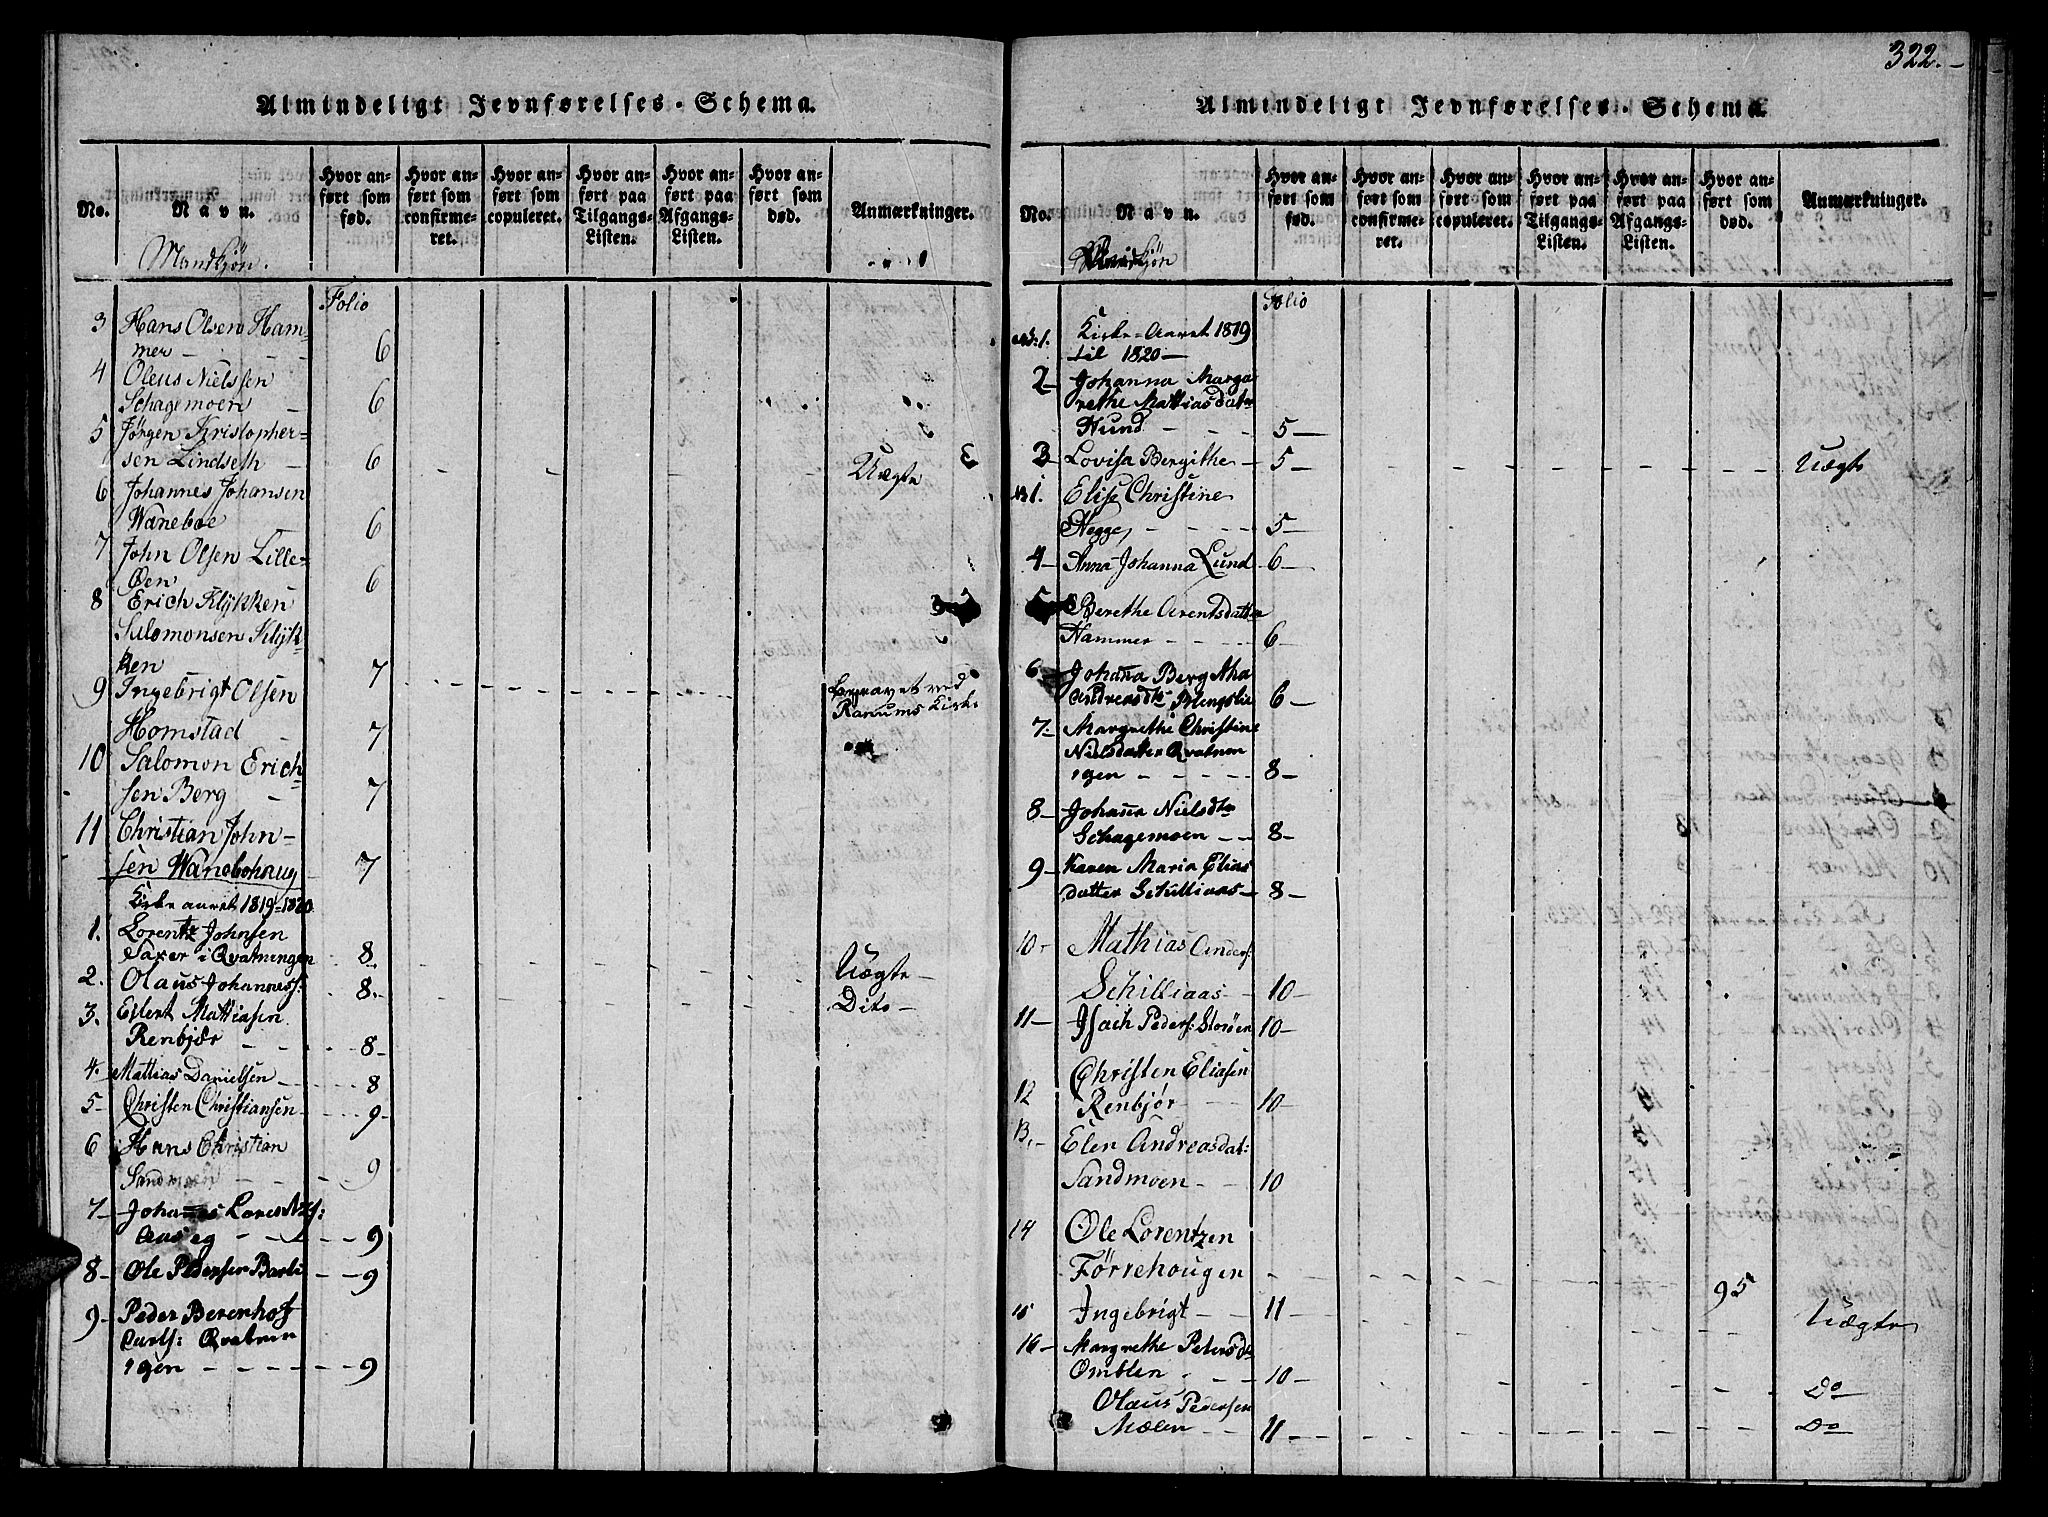 Almindeligt Jevnførelses-Schema.
No.
Navn.
Mandkjøn.
Hvor anført som fød.
Hvor anført som confirmeret.
Hvor anført som copuleret.
Hvor anført paa Tilgangs-Listen.
Hvor anført paa Afgangs-Listen.
Hvor anført som død.
Anmærkninger.
Folio
3 Hans Olsen Ham-
mer - 6
4 Oleus Nielssen
Schagemoen - 6
5 Jørgen Kristopher-
sen Lindseth - 6 Uægte
6 Johannes Johansen
Waneboe 6
7 John Olsen Lille-
Øen 6
8 Erich Klykken
Salomonsen Klyk-
ken 7
9 Ingebrigt Olsen Begravet ved
Ranums Kirke
Homstad - 7
10 Salomon Erich-
sen Berg - 7
11 Christian John-
sen Wanebohaug 7
Kirke aaret 1819-1820
1. Lorentz Johnsen
Saxer i Qvatningen 8 Uægte -
2. Olaus Johanness: 8. Dito -
3. Eilert Mattiasen
Renbjør - 8-
4. Mattias Danielsen 8
5- Christen Christiansen 9-
6 Hans Christian
Sandmoen 9
7- Johannes
9
8- Ole Pedersen 9
9- Peder Berenhof
Carls: Qvatnin
igen - 9
322.-
Almindeligt Jevnførelses-Schema.
No.
Navn.
Hvor anført som fød.
Hvor anført som confirmeret.
Hvor anført som copuleret.
Hvor anført paa Tilgangs-Listen.
Hvor anført paa Afgangs-Listen.
Hvor anført som død.
Anmærkninger.
Folio
1. Kirke-Aaret 1819
til 1820-
2- Johanna Marga
rethe Mattiasdater
Hund - 5-
3- Lovisa Bergithe - 5- Uægte
1. Elise Christine
Hegge, - 5-
4- Anna Johanna Lund 6-
5- Berethe Arentsdatter
Hammer - 6
6 Johanna Bergitha
Andreasdtr 6-
7- Margrethe Christine
Nielsdatter Qvatnin
igen - 8-
8- Johanna Nielsdtr
Schagemoen - 8-
9- Karen Maria Elias
datter Schilliaas - 8-
10- Mathias Anders:
Schilliaas - 10-
11- Isach Peders: Storøen 10-
Christen Eliasen
12 Renbjør 10-
13.- Elen Andreasdat:
Sandmoen - 10
14 Ole Lorentzen
Førrehougen - 95
15 Ingebrigt - 11- Uægte
16- Margrethe Petersdtr
Omblen - 10- Do
Olaus Pedersen
Mælen - 11- Do